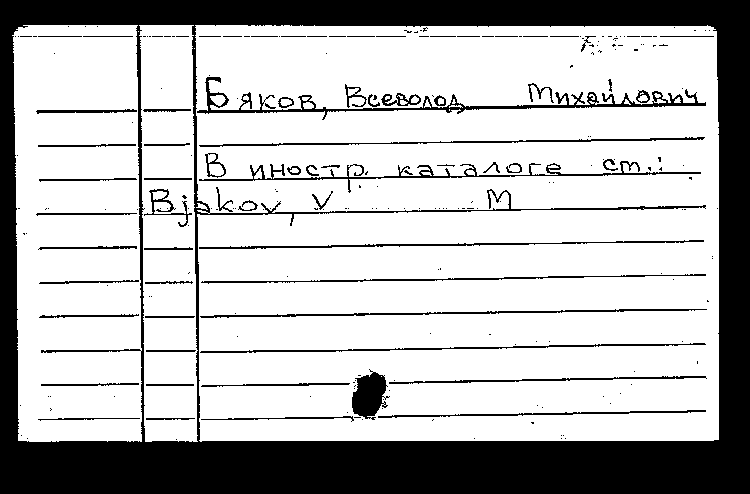 Бяков, Всеволод Михайлович
В иностр. каталоге ст.:
Bjakov, V M